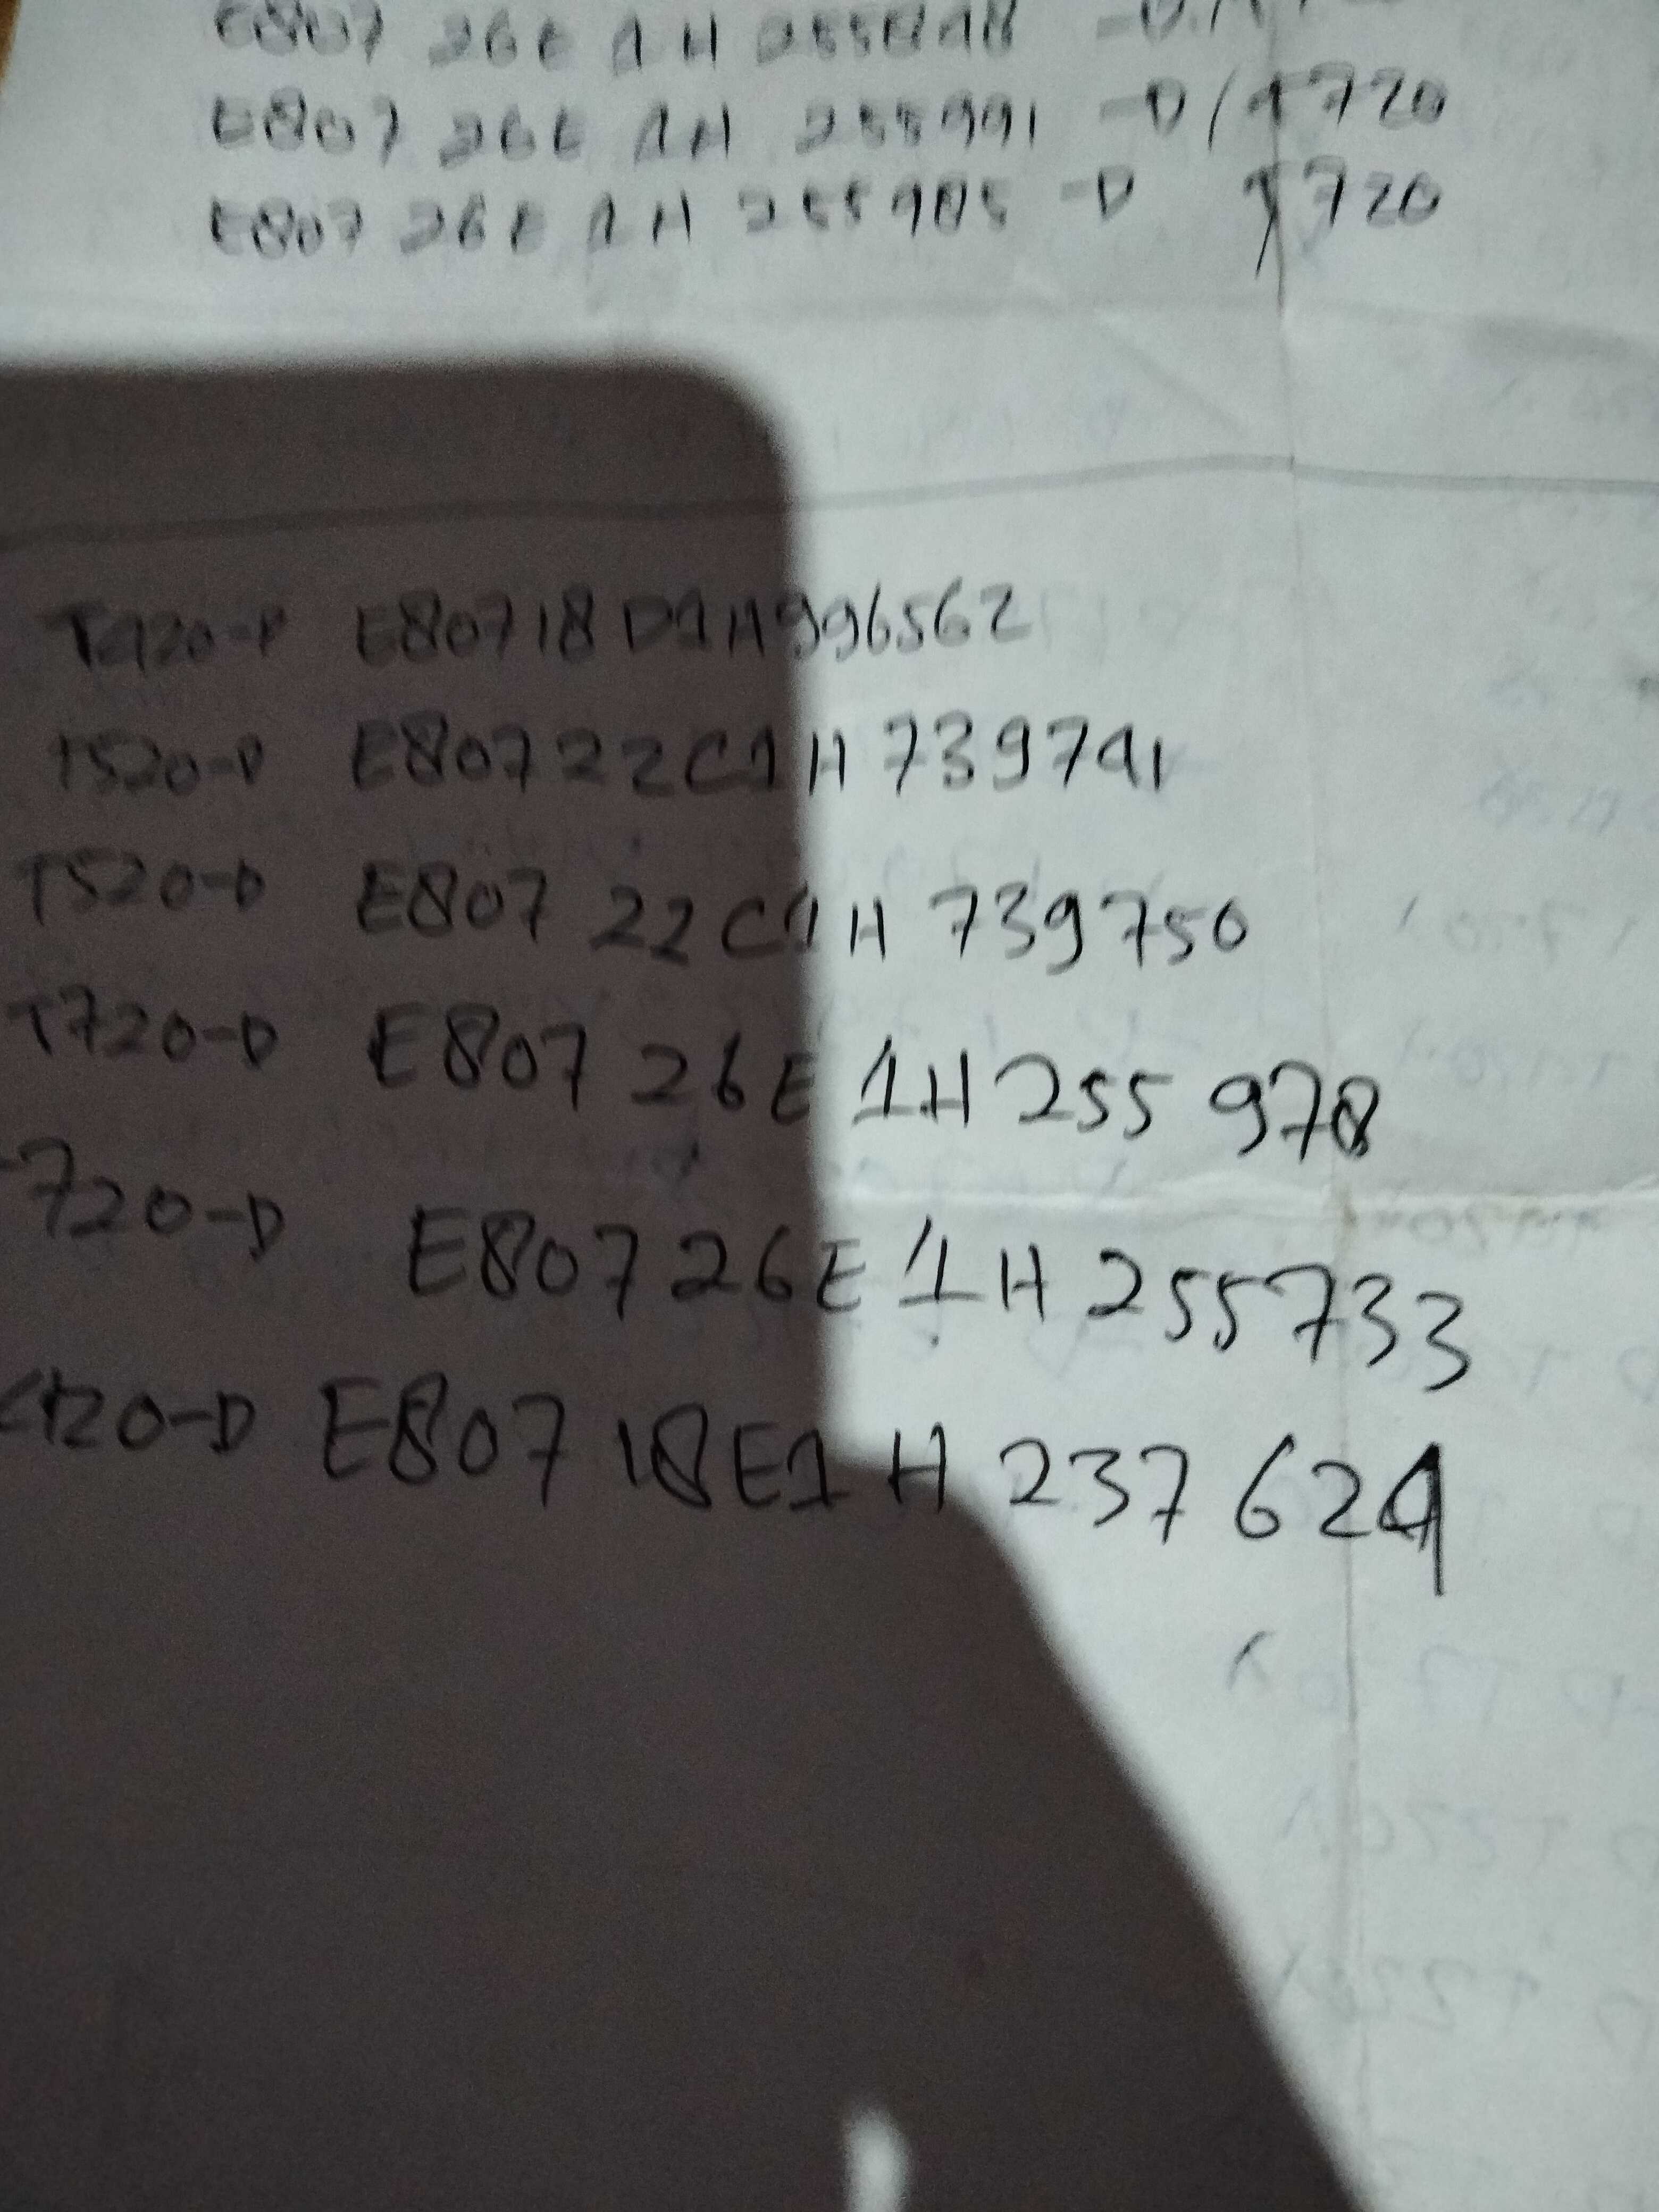 E807 26E 1H 255848
E807 26E 1H 255991 -D/T720
E807 26E 1H 255985 -D T720
T420-D E80718D1H996562
T520-D E80722C1H739741
T520-D E807 22C1H 739750
T720-D E807 26E 1H 255 978
720-D E807 26E 1H 255733
420-D E807 18E1H 237 624